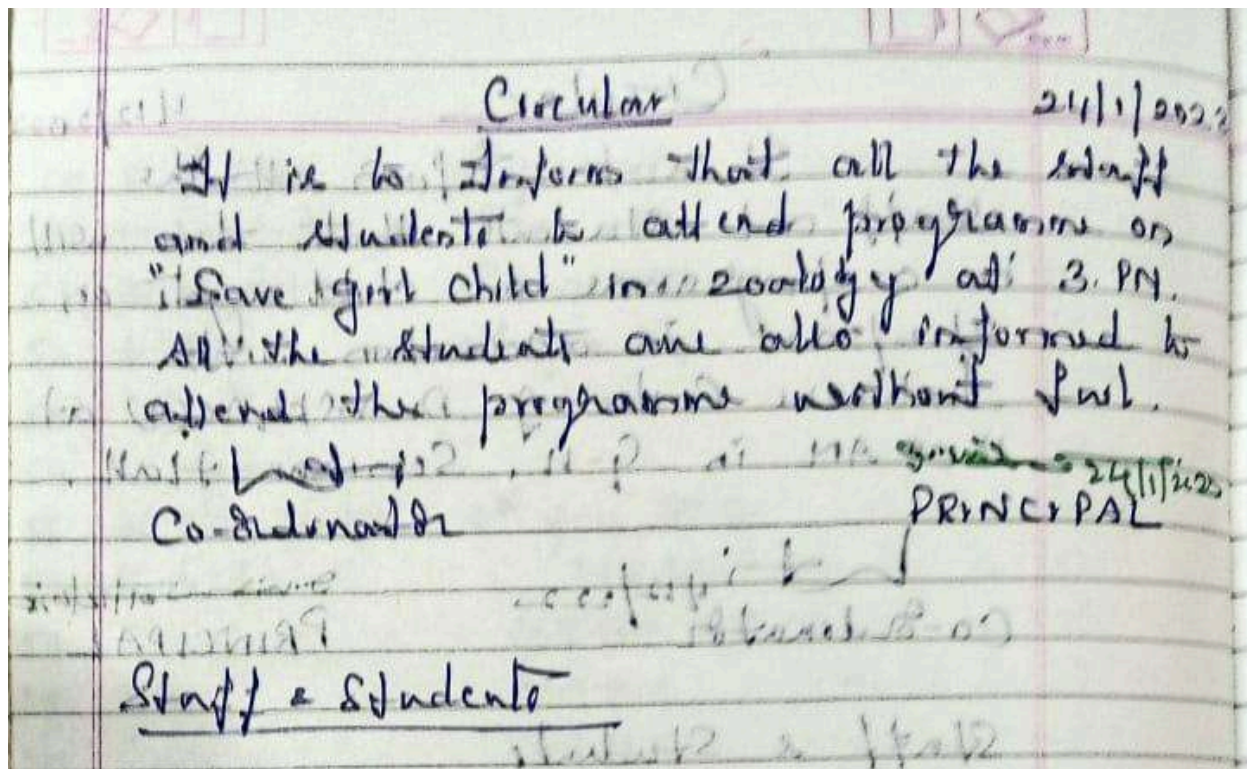 Circular
24/1/202
It is to Inform that all the staff
and students to attend programme on
"Save girl child" in zoology at 3. PM.
All the students are also informed to
attend the programme without fail.
24/1/2023
Co-ordinator
PRINCIPAL
Staff & Students